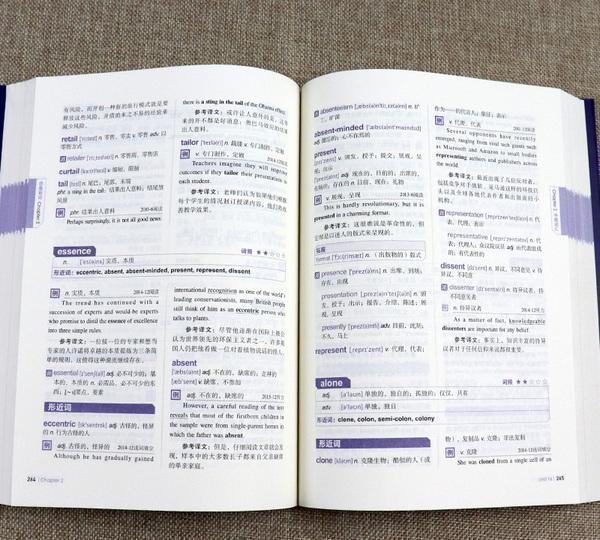 有风险，而开创一种新的旅行模式就是要
释放这些风险，并借助未之不易的经验来
减少风险。
retail n. 零售，零卖 v. 零售 adv. 以
零售方式
retailer n. 零售商，零售店
curtail v. 缩减，削减
tail n. 尾巴，尾部，末端
phr. a sting in the tail 结果出人意料；结尾带
例 phr. 结果出人意料
Perhaps surprisingly, it is not all good news:
there is a sting in the tail of the Obama effect.
参考译文：或许让人意外的是，这带
来的并不都是好消息：奥巴马效应的结果
出人意料。
tailor n. 裁缝 v. 专门制作，定做
例 v. 专门制作，定做
Teachers imagine they will improve
outcomes if they tailor their presentations to
each student.
参考译文：老师们认为如果他们根据
每个学生的情况制订授课内容，他们就会
改善教学效果。
essence
词频 ★★
n. 实质，本质
形近词：eccentric, absent, absent-minded, present, represent, dissent
例 n. 实质，本质
The trend has continued with a
succession of experts and would-be experts
who promise to distil the essence of excellence
into three simple rules.
参考译文：一位接一位的专家和想当
专家的人许诺将卓越的本质提炼为三条简
单的规则，这使得这种潮流继续存在。
essential adj. 必不可少的；基
本的，本质的 n. 必需品，必不可少的东
西；[~s]要点，要素
形近词
eccentric adj. 古怪的，怪异
的 n. 行为古怪的人
例 adj. 古怪的，怪异的
Although he has gradually gained
international recognition as one of the world's
leading conservationists, many British people
still think of him as an eccentric person who
talks to plants.
参考译文：尽管他逐渐在国际上被公
认为世界领先的环保主义者之一，许多英
国人仍把他看做一位对着植物说话的怪人。
absent
adj. 不在的，缺席的；走神的
v. 缺席，不参加
例 adj. 不在的，缺席的
However, a careful reading of the text
reveals that most of the firstborn children in
the sample were from single-parent homes in
which the father was absent.
参考译文：但是，仔细阅读文章就会发
现，样本中的大多数长子都来自父亲缺席
的单亲家庭。
264 Chapter 2
absenteeism n. 旷
工，旷课
absent-minded
adj. 健忘的；心不在焉的
present
v. 颁发，授予；提交；呈现，显
adj. 现在的，目前的；出席的，
在场的；存在的 n. 目前，现在；礼物
例 v. 展现，呈现
This is hardly revolutionary, but it is
presented in a charming format.
参考译文：这很难说是革命性的，但
它却是以迷人的版式来呈现的。
format n.（出版物的）版式
presence n. 出席，到场；
存在，出现
presentation n. 颁
发，授予；出示；报告，介绍，陈述；展
现，呈现
presently adv. 目前，此刻；
不久，马上
represent v. 代理，代表；
作为……的代言人；象征；表示
例 v. 代理，代表
Several opponents have recently
emerged, ranging from rival tech giants such
as Microsoft and Amazon to small bodies
representing authors and publishers across
the world.
参考译文：最近出现了几位反对者，
包括竞争对手微软、亚马逊这样的科技巨
头以及全球各地代表作者和出版商的小
机构。
representation n. 代
表，代理；表示
representative n.
代表，代理人；众议院议员 adj. 典型的；
代议制的
dissent n. 异议，不同意见 v. 持
异议，不同意
dissenter n. 持异议者，持
不同意见者
例 n. 持异议者
As a matter of fact, knowledgeable
dissenters are important for any belief.
参考译文：事实上，知识丰富的持异
议者对于任何信仰来说都很重要。
alone
词频 ★★
adj. 单独的，独自的；孤独的；仅仅，只有
adv. 单独，独自
形近词：clone, colon, semi-colon, colony
形近词
clone n. 克隆生物；酷似的人（或
物），复制品 v. 克隆；非法复制
例 v. 克隆
She was cloned from a single cell of an
Unit 16 265